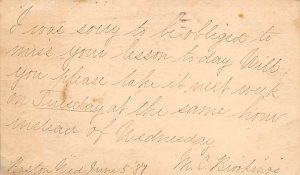 I was sorry to be obliged to
miss your lesson to day Will
you please take it next week
on Tuesday at the same hour
instead of Wednesday
M. C. Brookings
Boston Wed June 5 '89